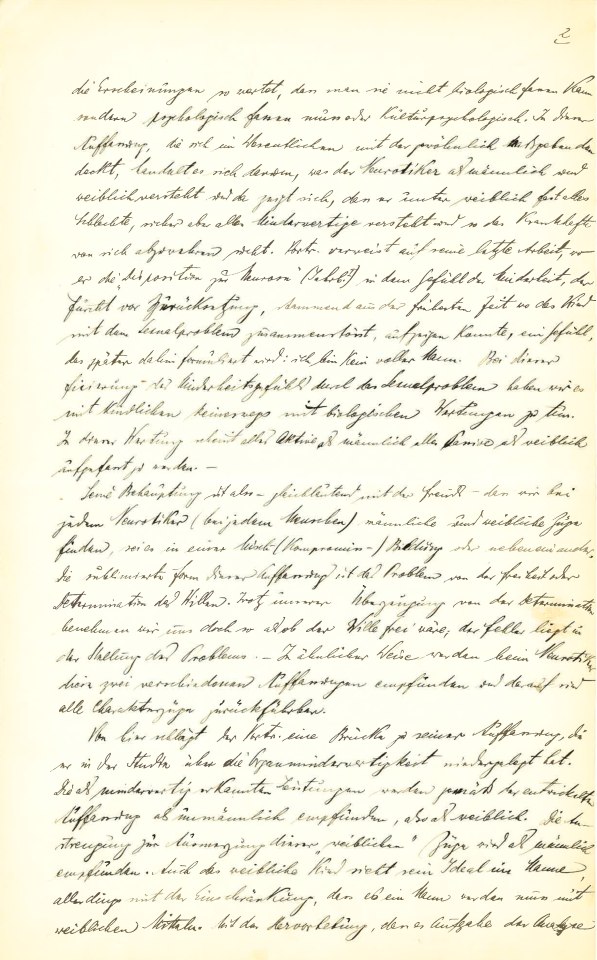 2
die Erscheinungen so wertet, dass man sie nicht biologisch fassen kann
sondern psychologisch fassen muss oder kulturpsychologisch. In dieser
Auffassung, die sich im Wesentlichen mit der gewöhnlich
deckt, handelt es sich darum, was der Neurotiker als männlich und
weiblich versteht und da zeigt sich, dass er unter weiblich fast alles
Schlechte, sicher aber alles Minderwertige versteht und so das Krankhafte
von sich abzuwehren sucht. Vortr. verweist auf seine letzte Arbeit, wo
er die "Disposition zur Neurose" (Jahrb. I) in dem Gefühl der Minderheit, der
Furcht vor Zurücksetzung, stammend aus der frühesten Zeit wo das Kind
mit dem Sexualproblem zusammenstösst, aufzeigen konnte, ein Gefühl,
das später dahin formuliert wird: ich bin kein voller Mann. Bei dieser
Fixierung des Minderheitsgefühls durch das Sexualproblem haben wir es
mit kindlichen keineswegs mit biologischen Wertungen zu tun.
In dieser Wertung scheint alles Aktive als männlich alles Passive als weiblich
aufgefasst zu werden. —
Seine Behauptung ist also – gleichlautend mit der Freuds – dass wir bei
jedem Neurotiker (bei jedem Menschen) männliche und weibliche Züge
finden, sei es in einer Misch- (Kompromiss-) Bildung oder nebeneinander.
Die sublimierte Form dieser Auffassung ist das Problem von der Freiheit oder
Determination des Willens. Trotz unserer Überzeugung von der Determination
benehmen wir uns doch so als ob der Wille frei wäre; der Fehler liegt in
der Stellung des Problems. – In ähnlicher Weise werden beim Neurotiker
diese zwei verschiedenen Auffassungen empfunden und darauf sind
alle Charakterzüge zurückführbar.
Von hier schlägt der Vortr. eine Brücke zu seiner Auffassung, die
er in der Studie über die Organminderwertigkeit niedergelegt hat.
Die als minderwertig erkannten Leistungen werden gemäss der entwickelten
Auffassung als unmännlich empfunden, also als weiblich. Die An-
strengung zur Ausmerzung dieser "weiblichen" Züge wird als männlich
empfunden. Auch das weibliche Kind sieht sein Ideal im Manne,
allerdings mit der Einschränkung, dass es ein Mann werden muss mit
weiblichen Mitteln. Mit der Hervorhebung, dass es Aufgabe der Analyse